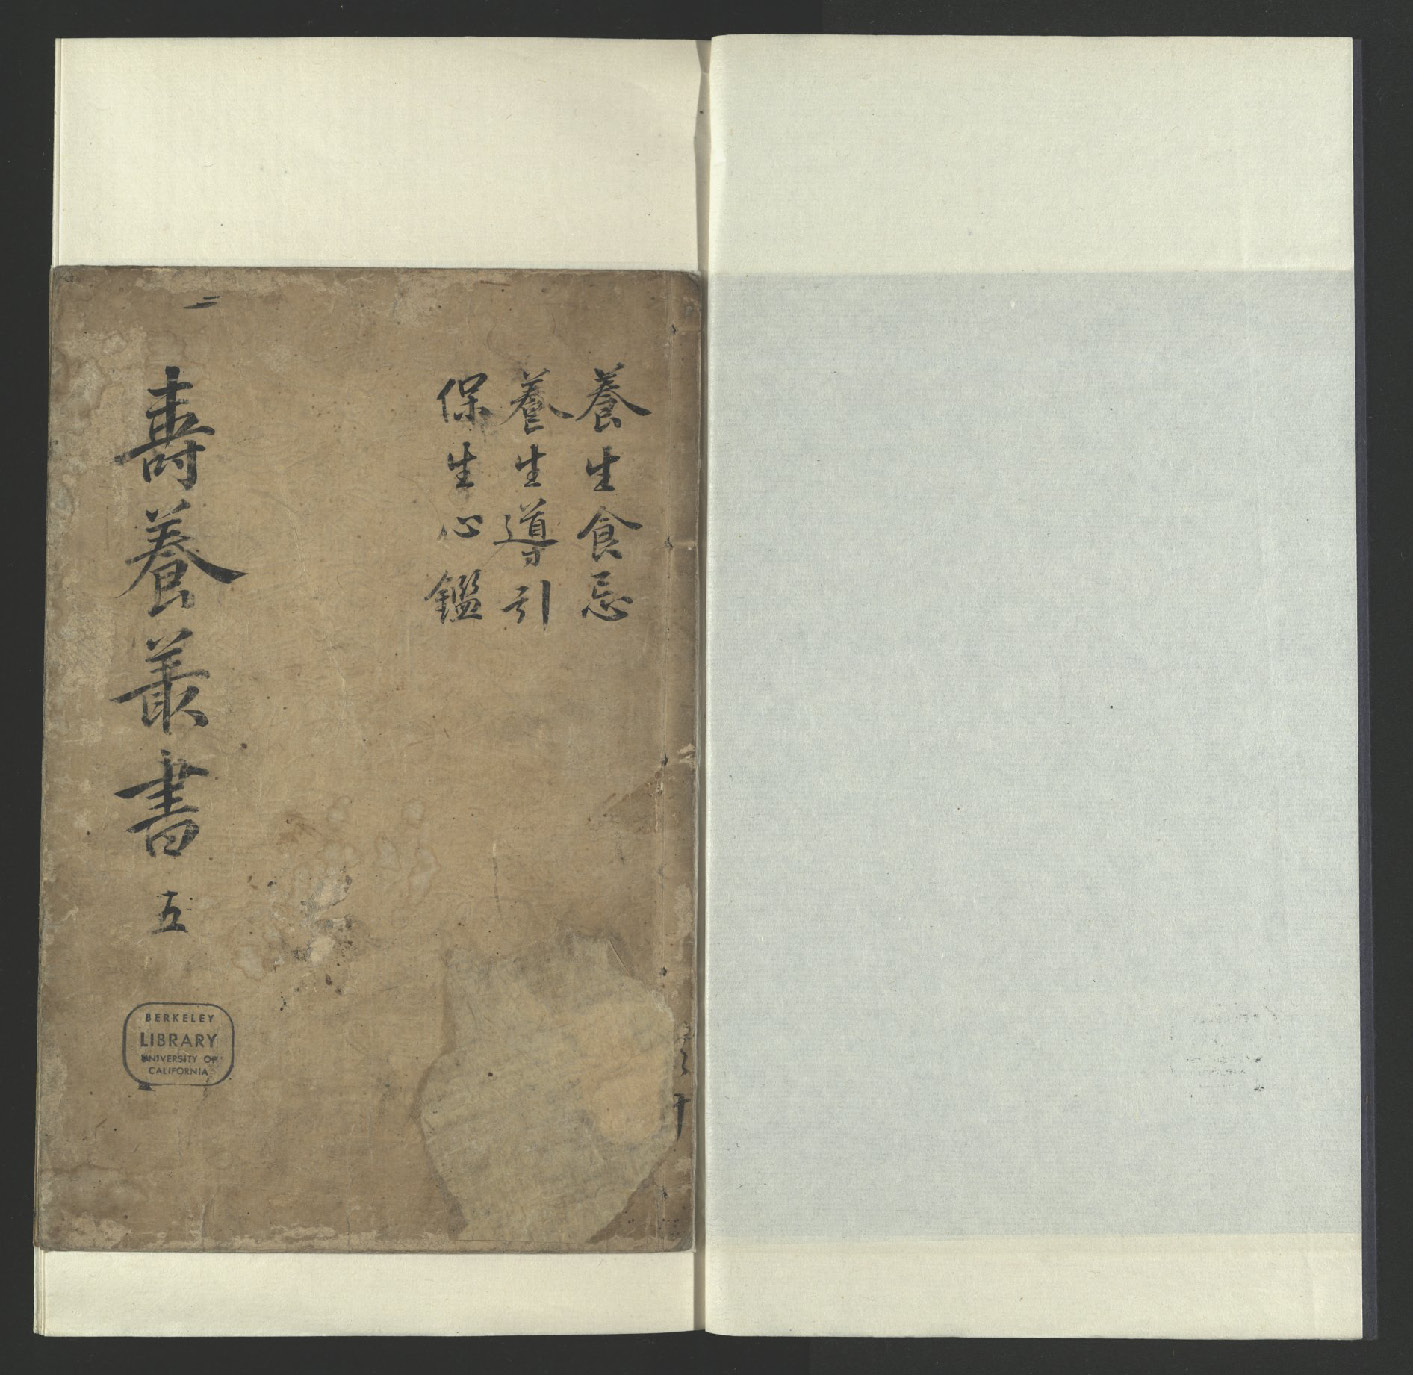 養生食忌
養生導引
保生心鑑
壽養叢書 五
BERKELEY
LIBRARY
UNIVERSITY OF
CALIFORNIA